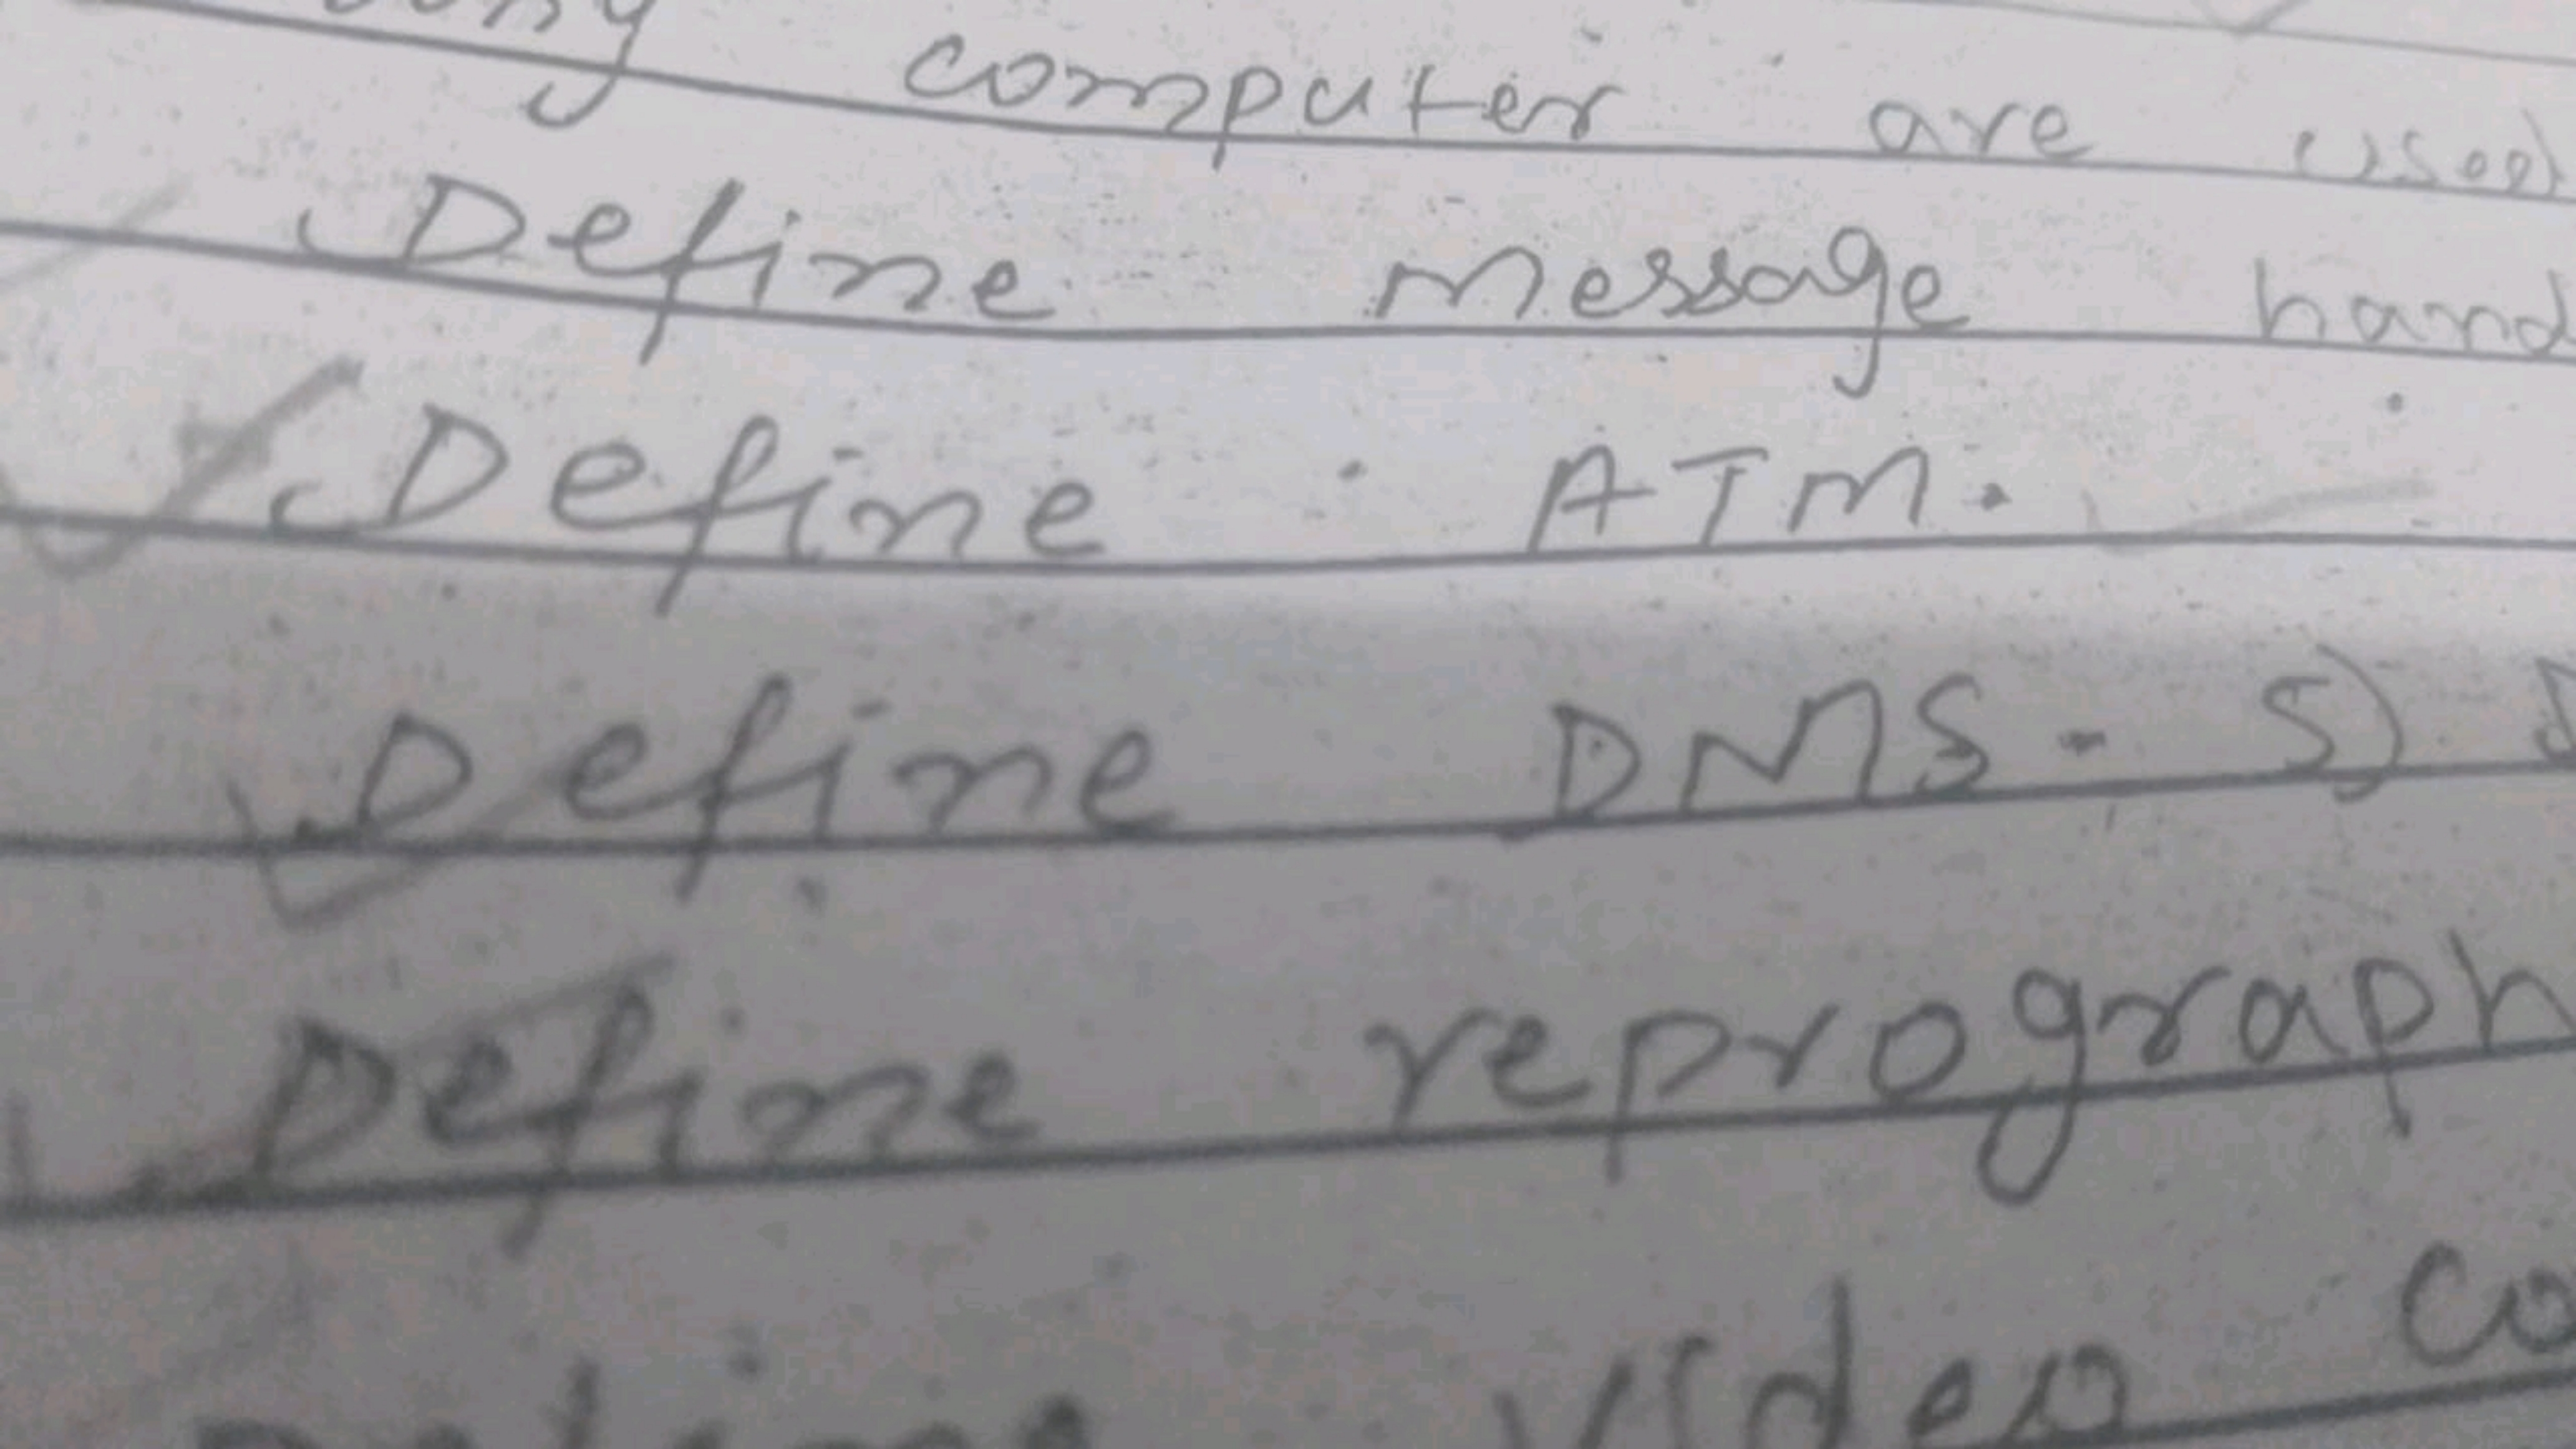 computer are used
Define message hand
Define ATM.
Define DMS. 5)
Define reprograph
Define video co